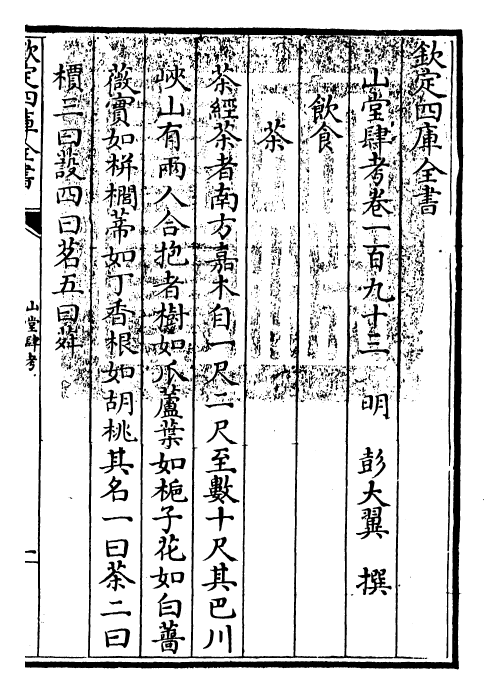 欽定四庫全書
山堂肆考卷一百九十三　明　彭大翼　撰
飲食
茶
茶經茶者南方嘉木自一尺二尺至數十尺其巴川
峽山有兩人合抱者樹如爪蘆葉如梔子花如白薔
薇實如栟櫚蒂如丁香根如胡桃其名一曰茶二曰
檟三曰蔎四曰茗五曰荈
欽定四庫全書
山堂肆考
一